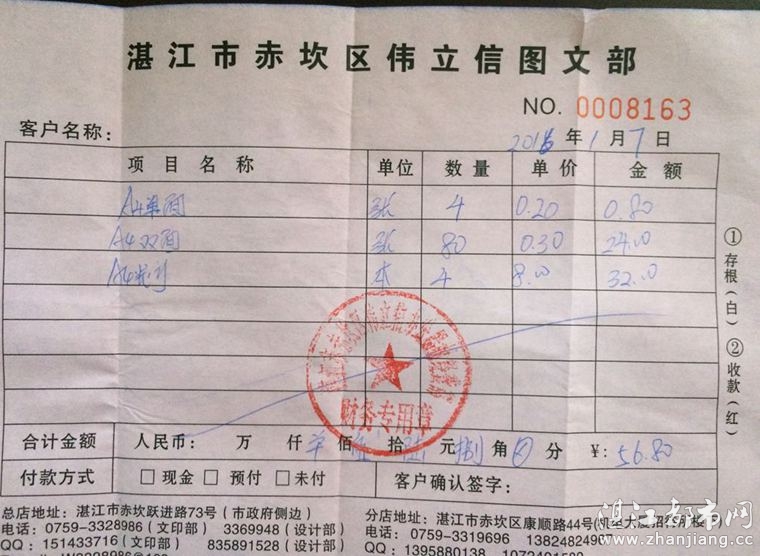 湛江市赤坎区伟立信图文部
NO. 0008163
客户名称：
2015 年 1 月 7 日
项目名称 单位 数量 单价 金额
A4单面 张 4 0.20 0.80
A4双面 张 80 0.30 24.00
A4 本 4 8.00 32.00
①存根（白） ②收款（红）
财务专用章
合计金额 人民币： 万 仟 佰 伍 拾 陆 元 捌 角 分 ￥: 56.80
付款方式 □ 现金 □ 预付 □ 未付 客户确认签字：
总店地址：湛江市赤坎跃进路73号（市政府侧边） 分店地址：湛江市赤坎区康顺路44号
电话：0759-3328986（文印部） 3369948（设计部） 电话：0759-3319696
QQ：151433716（文印部） 835891528（设计部） QQ：1395880138
湛江都市网
www.zhanjiang.cc